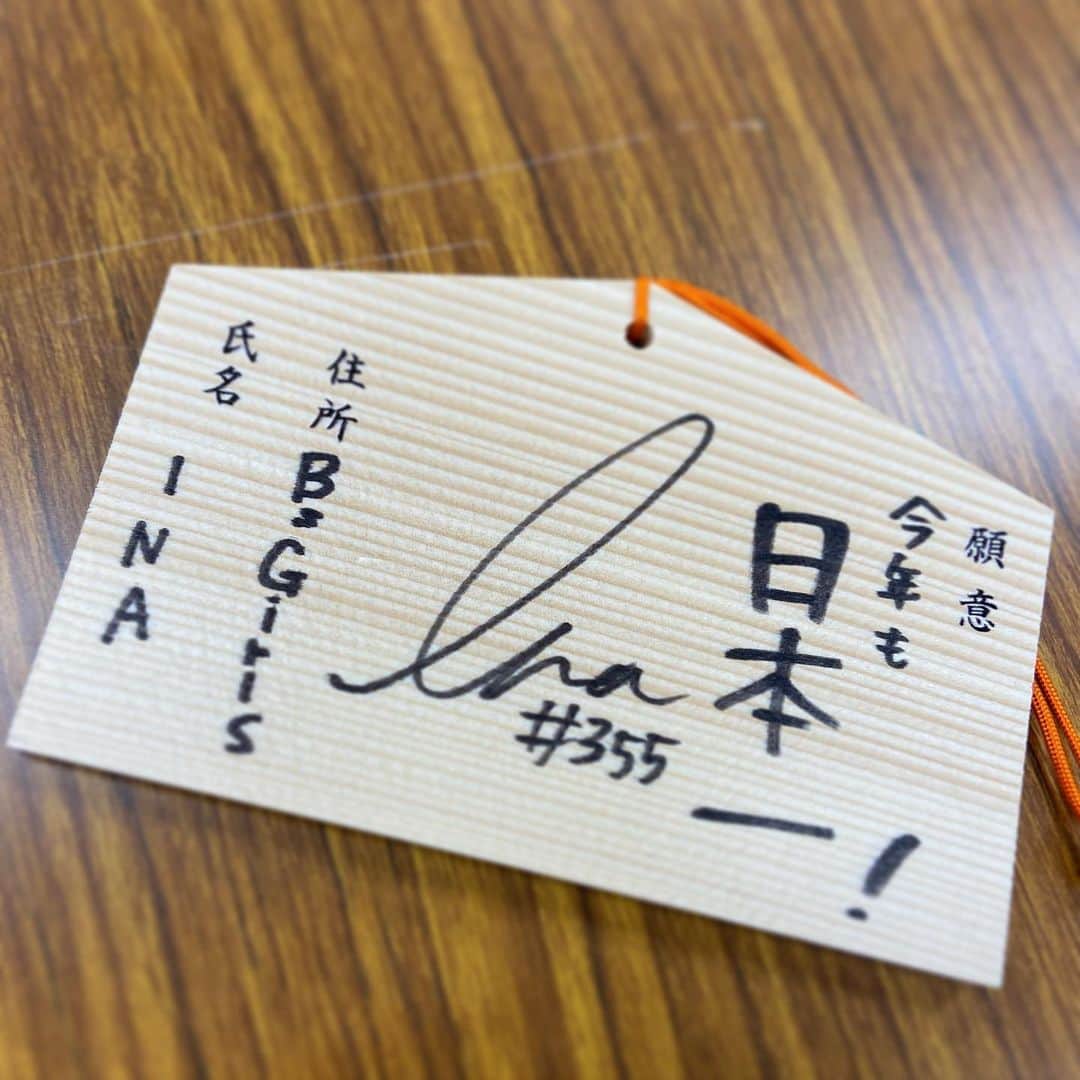 願意
今年も
日本一!
Ina
#355
住所
BsGirls
氏名
INA